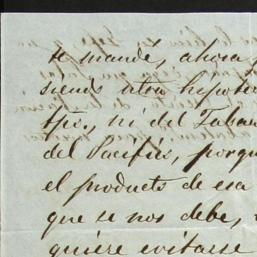 te mandé, ahora
siendo otra hipote
tpo, ni del Taba
del Pacífico, porqu
el producto de esa
que se nos debe,
quiere evitarse